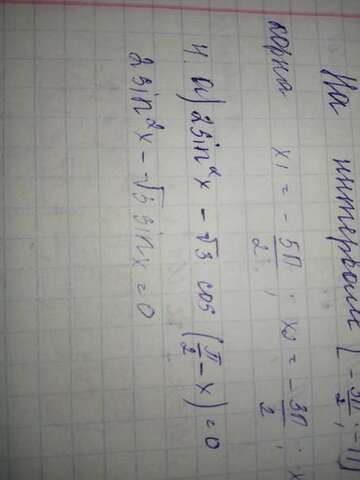 На интервале [-5π/2; -π]
корня x₁ = -5π/2; x₂ = -3π/2; x
4. a) 2sin²x - √3 cos (π/2 - x) = 0
2sin²x - √3 sinx = 0